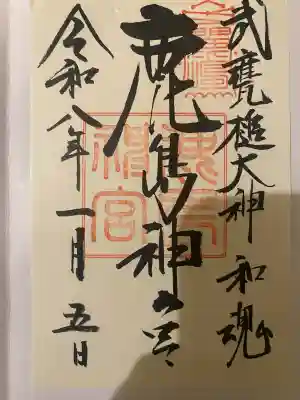 武甕槌大神 和魂
鹿島神宮
令和八年一月五日